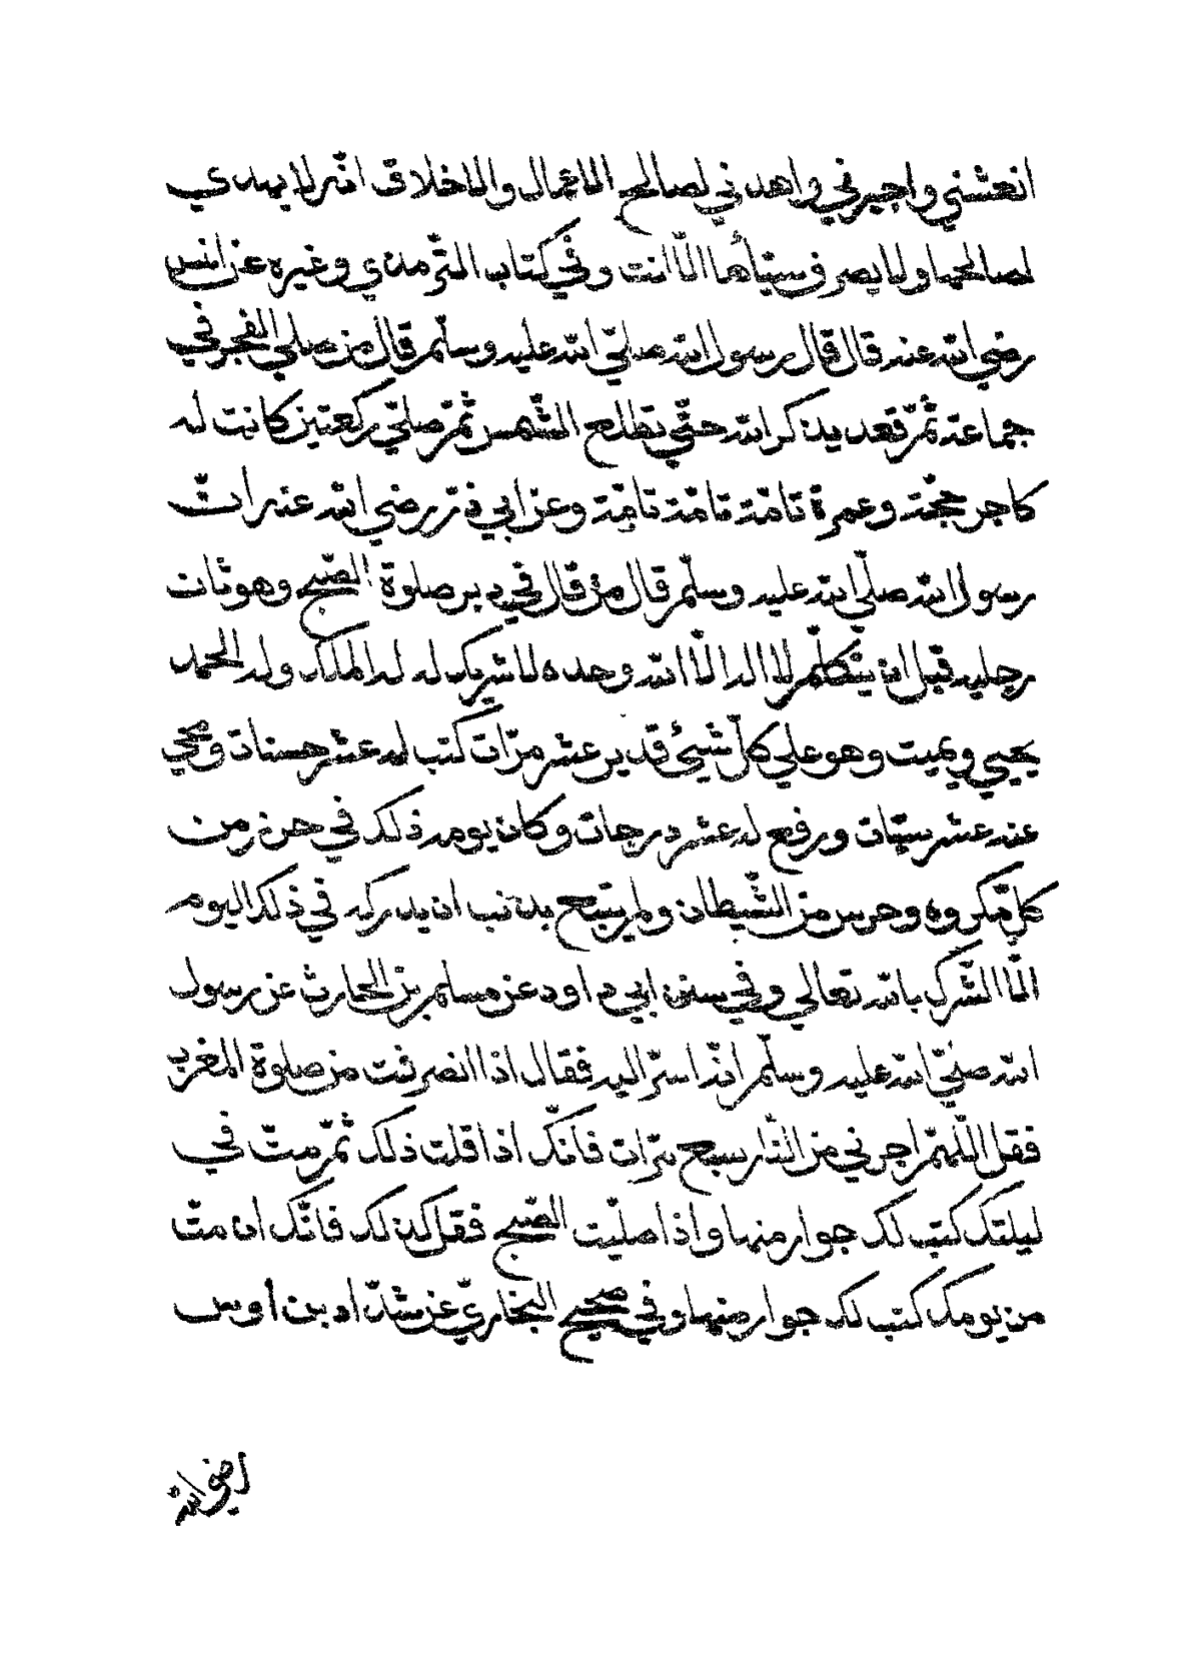 انعشني واجبرني واهدني لصالح الاعمال والاخلاق انّه لا يهدي
لصالحها ولا يصرف سيّأها الّا انت وفي كتاب التّرمذي وغيره عن انس
رضي الله عنه قال قال رسول الله صلّي الله عليه وسلّم قال من صلي الفجر في
جماعة ثمّ قعد يذكر الله حتّي تطلع الشّمس ثمّ صلّي ركعتين كانت له
كاجر حجّة وعمرة تامّة تامّة تامّة وعن ابي ذرّ رضي الله عنه انّ
رسول الله صلّي الله عليه وسلّم قال من قال في دبر صلوة الصّبح وهو ثان
رجليه قبل ان يتكلّم لا اله الّا الله وحده لا شريك له له الملك وله الحمد
يحيي ويميت وهو علي كلّ شيئ قدير عشر مرّات كتب له عشر حسنات ومحي
عنه عشر سيّات ورفع له عشر درجات وكان يومه ذلك في حرز من
كلّ مكروه وحرس من الشّيطان ولم يتبع بذنب ان يدركه في ذلك اليوم
الّا الشّرك بالله تعالي وفي سنن ابي داود عن مسلم بن الحارث عن رسول
الله صلّي الله عليه وسلّم انّه اسرّ اليه فقال اذا انصرفت من صلوة المغرب
فقل اللّهمّ اجرني من النّار سبع مرّات فانّك اذا قلت ذلك ثمّ متّ في
ليلتك كتب لك جوار منها واذا صلّيت الصّبح فقل كذلك فانّك ان متّ
من يومك كتب لك جوار منها وفي صحيح البخاريّ عن شدّاد بن اوس
رضي الله